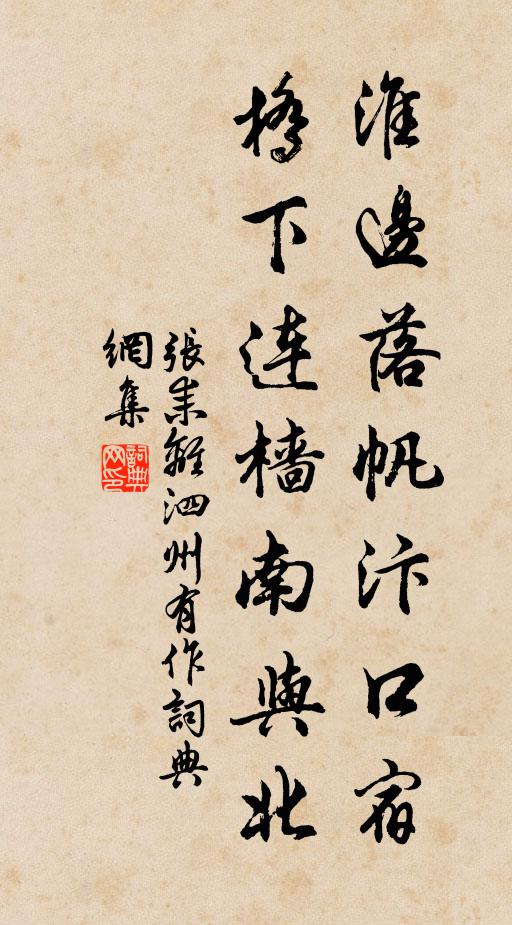 淮邊落帆汴口宿
橋下連檣南與北
張耒離泗州有作詞典
網集
詞典
網印